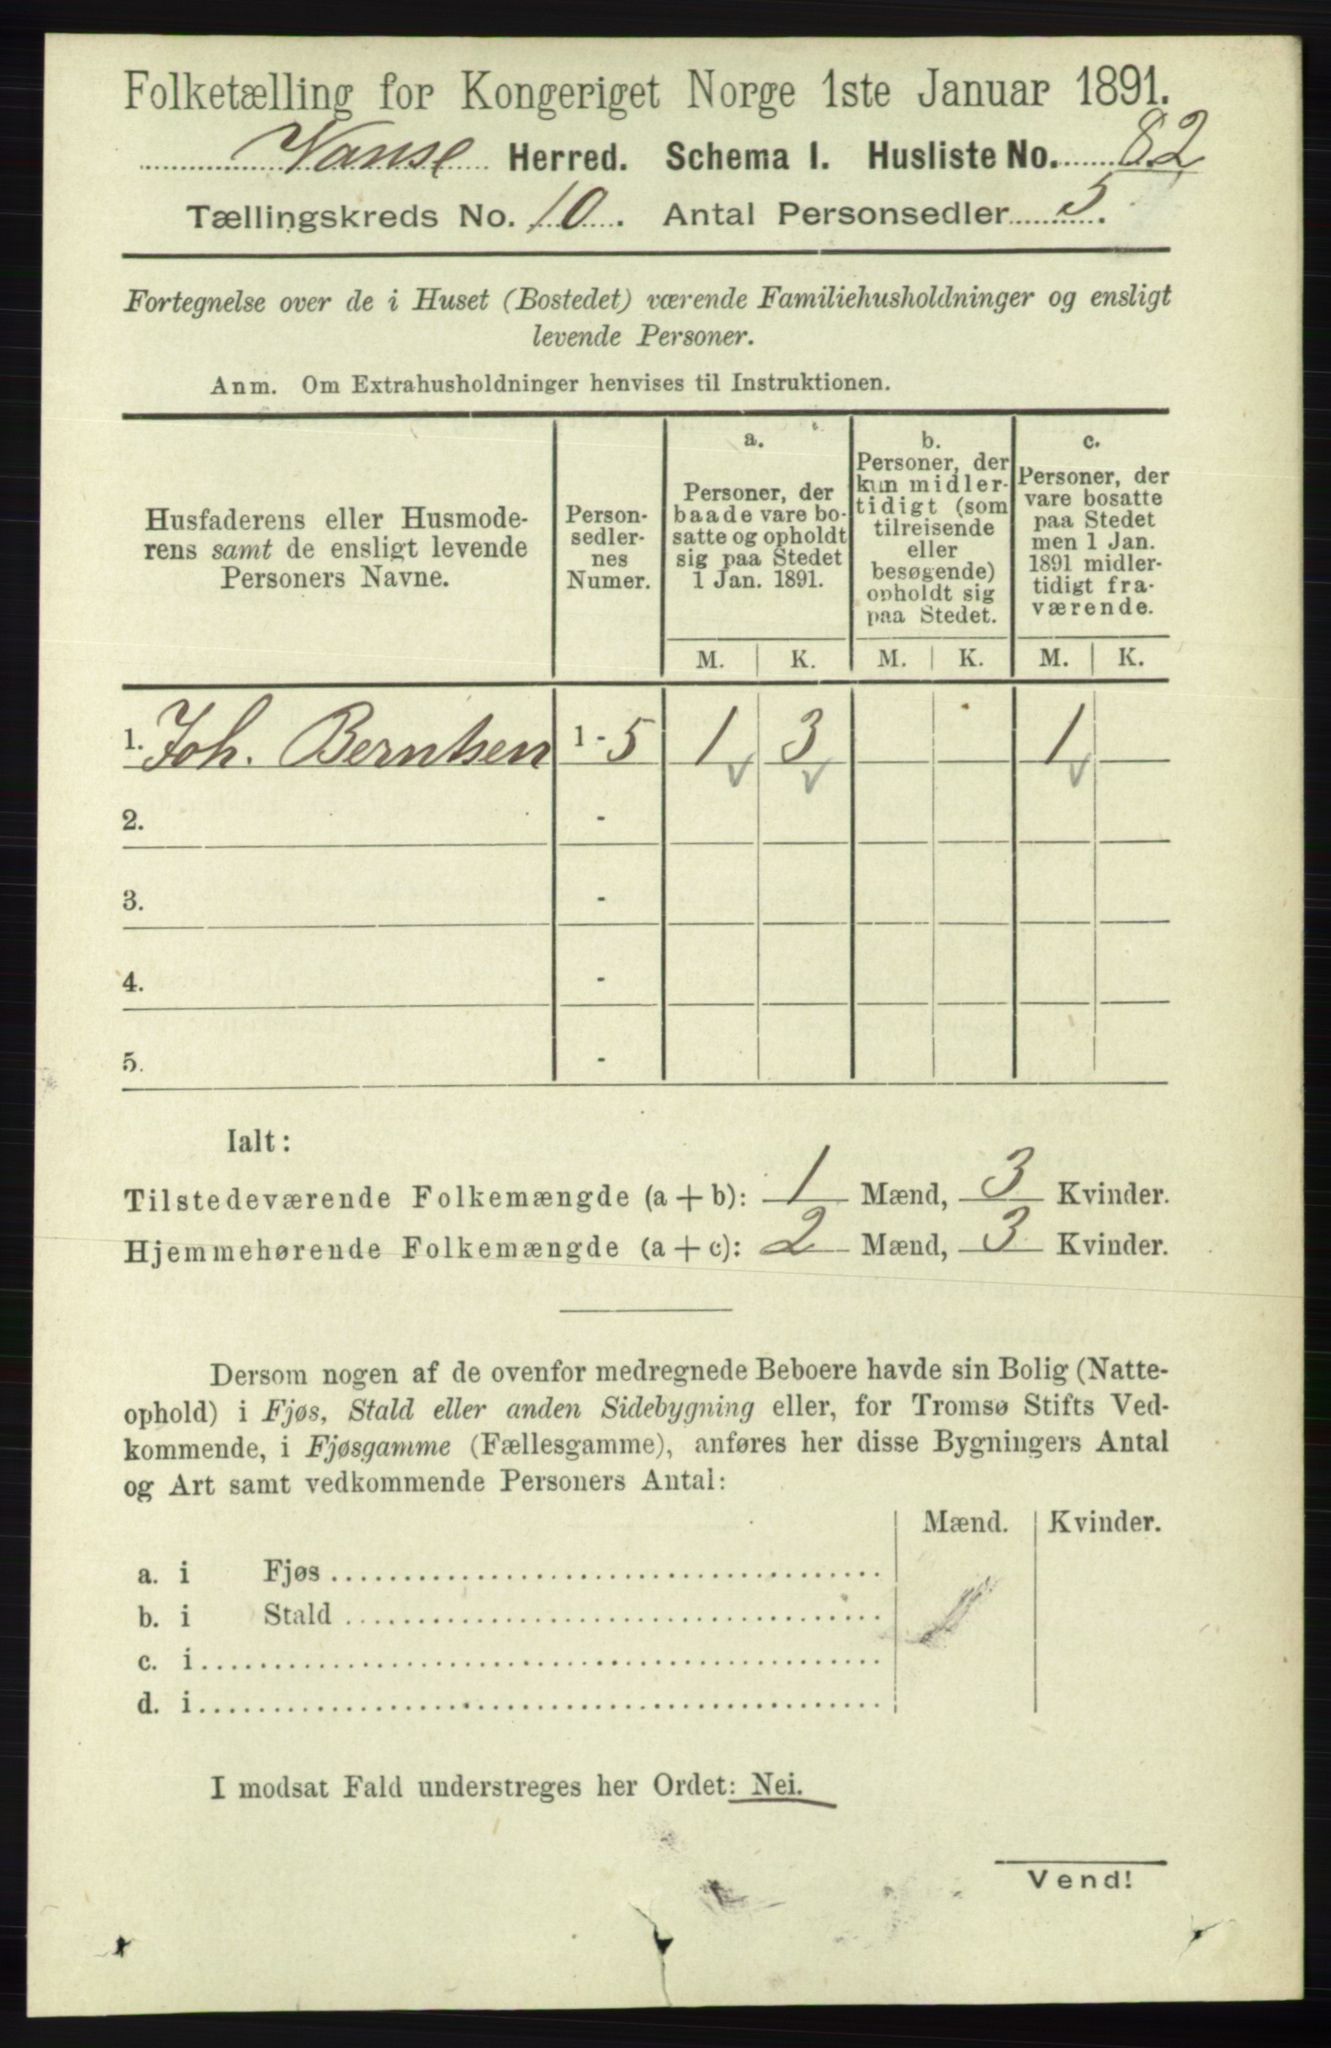 Folketælling for Kongeriget Norge 1ste Januar 1891.
Vanse Herred. Schema I. Husliste No. 82
Tællingskreds No. 10. Antal Personsedler 5.
Fortegnelse over de i Huset (Bostedet) værende Familiehusholdninger og ensligt
levende Personer.
Anm. Om Extrahusholdninger henvises til Instruktionen.
Husfaderens eller Husmode-
rens samt de ensligt levende
Personers Navne.
Person-
sedler-
nes
Numer.
a.
Personer, der
baade vare bo-
satte og opholdt
sig paa Stedet
1 Jan. 1891.
b.
Personer, der
kun midler-
tidigt (som
tilreisende
eller
besøgende)
opholdt sig
paa Stedet.
c.
Personer, der
vare bosatte
paa Stedet
men 1 Jan.
1891 midler-
tidigt fra-
værende.
M. K. M. K. M. K.
1. Joh. Berntsen 1 - 5 1 3 1
2. -
3. -
4. -
5. -
Ialt:
Tilstedeværende Folkemængde (a + b): 1 Mænd, 3 Kvinder.
Hjemmehørende Folkemængde (a + c): 2 Mænd, 3 Kvinder.
Dersom nogen af de ovenfor medregnede Beboere havde sin Bolig (Natte-
ophold) i Fjøs, Stald eller anden Sidebygning eller, for Tromsø Stifts Ved-
kommende, i Fjøsgamme (Fællesgamme), anføres her disse Bygningers Antal
og Art samt vedkommende Personers Antal:
Mænd. Kvinder.
a. i Fjøs
b. i Stald
c. i
d. i
I modsat Fald understreges her Ordet: Nei.
Vend!